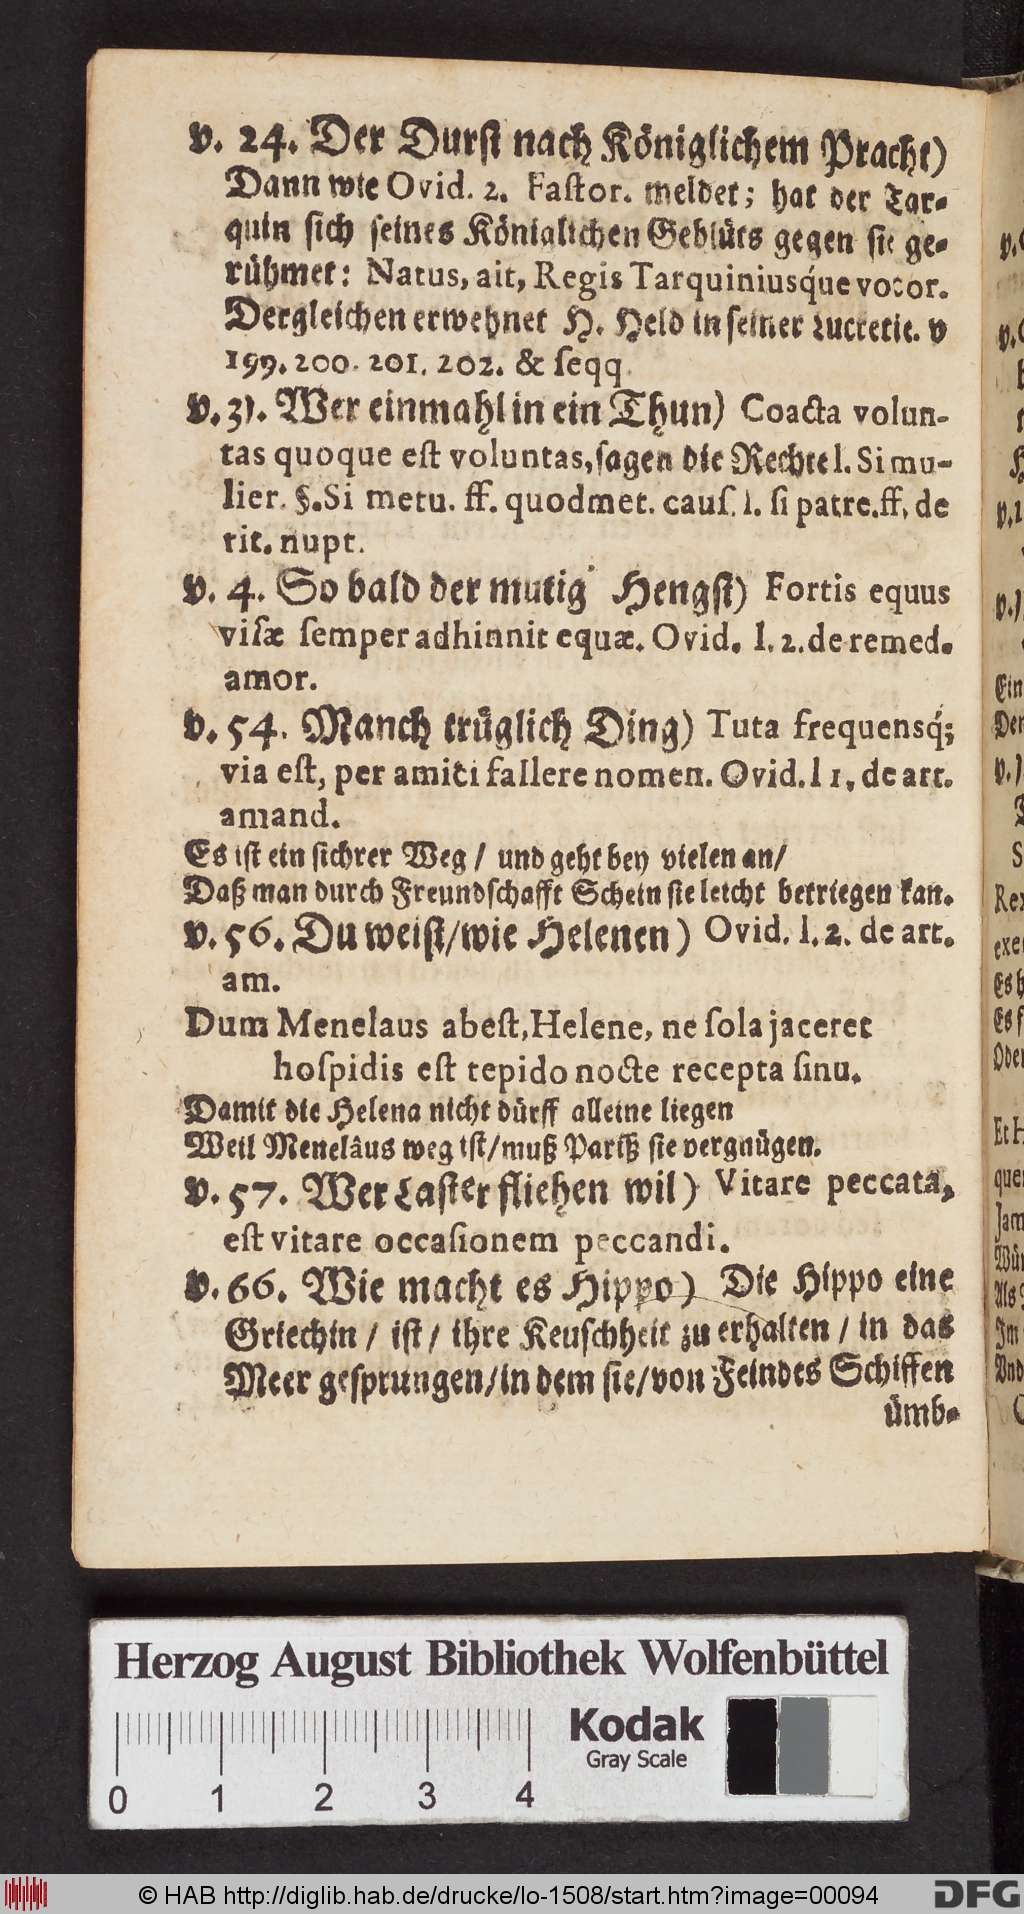 v. 24. Der Durst nach Königlichem Pracht)
Dann wie Ovid. 2. Fastor. meldet; hat der Tar-
quin sich seines Königlichen Geblüts gegen sie ge-
rühmet: Natus, ait, Regis Tarquiniusq́ue vocor.
Dergleichen erwehnet H. Held in seiner Lucretie. v
199. 200. 201. 202. & ſeqq.
v. 31. Wer einmahl in ein Thun) Coacta volun-
tas quoque eſt voluntas, sagen die Rechte l. Si mu-
lier. §. Si metu. ff. quodmet. cauſ. l. ſi patre. ff. de
rit. nupt.
v. 4. So bald der mutig Hengst) Fortis equus
viſæ ſemper adhinnit equæ. Ovid. l. 2. de remed.
amor.
v. 54. Manch trüglich Ding) Tuta frequensq́;
via eſt, per amici fallere nomen. Ovid. l 1. de art.
amand.
Es ist ein sichrer Weg / und geht bey vielen an /
Daß man durch Freundschafft Schein sie leicht betriegen kan.
v. 56. Du weist / wie Helenen) Ovid. l. 2. de art.
am.
Dum Menelaus abeſt, Helene, ne ſola jaceret
hoſpidis eſt tepido nocte recepta ſinu.
Damit die Helena nicht dürff alleine liegen
Weil Menelâus weg ist / muß Pariß sie vergnügen.
v. 57. Wer Laster fliehen wil) Vitare peccata,
eſt vitare occaſionem peccandi.
v. 66. Wie macht es Hippo) Die Hippo eine
Griechin / ist / ihre Keuschheit zu erhalten / in das
Meer gesprungen / in dem sie / von Feindes Schiffen
ümb-
Herzog August Bibliothek Wolfenbüttel
Kodak
Gray Scale
0 1 2 3 4
© HAB http://diglib.hab.de/drucke/lo-1508/start.htm?image=00094
DFG